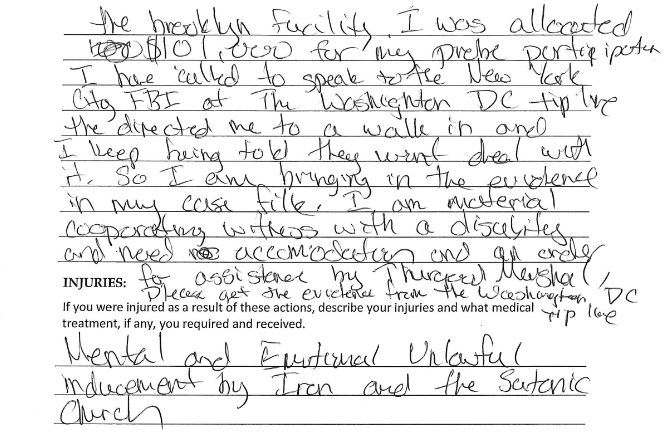 the brooklyn facility. I was allocated
$101,000 for my probe participation
I have called to speak to the New York
City FBI at The Washighton DC tip line
the directed me to a walk in and
I keep being told they wont deal with
it. So I am bringing in the evidence
in my case file. I am material
cooperating witness with a disability
and need accomodation and an order
INJURIES: for assistance by Thurgood Marshal,
Please get the evidence from the Washington DC
If you were injured as a result of these actions, describe your injuries and what medical tip line
treatment, if any, you required and received.
Mental and Emotional Unlawful
inducement by Iran and the Satanic
Church